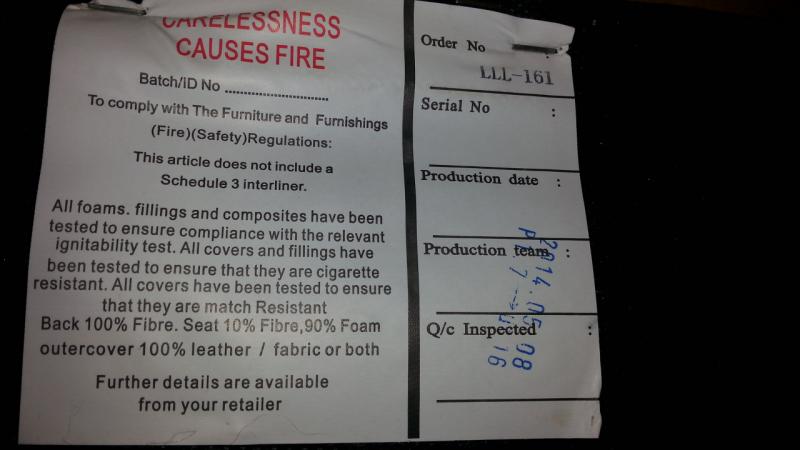 CARELESSNESS
CAUSES FIRE
Batch/ID No ............................
To comply with The Furniture and Furnishings
(Fire)(Safety)Regulations:
This article does not include a
Schedule 3 interliner.
All foams. fillings and composites have been
tested to ensure compliance with the relevant
ignitability test. All covers and fillings have
been tested to ensure that they are cigarette
resistant. All covers have been tested to ensure
that they are match Resistant
Back 100% Fibre. Seat 10% Fibre,90% Foam
outercover 100% leather / fabric or both
Further details are available
from your retailer
Order No :
LLL-161
Serial No :
Production date :
Production team :
Q/c Inspected :
2014.05.08
16